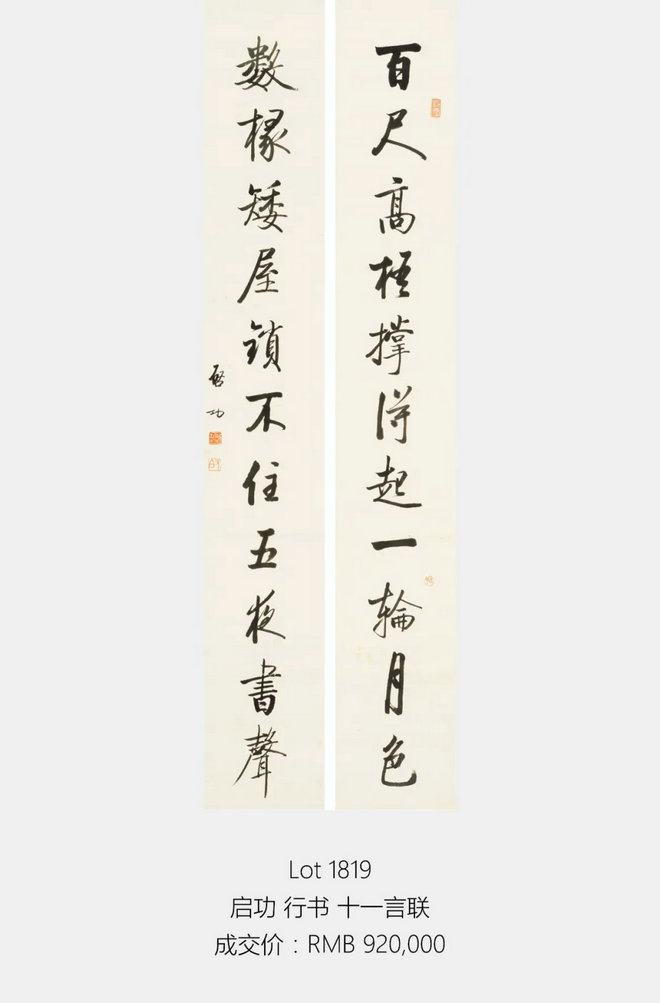 百尺高梧撑得起一輪月色
數椽矮屋鎖不住五夜書聲
啟功
Lot 1819
启功 行书 十一言联
成交价：RMB 920,000